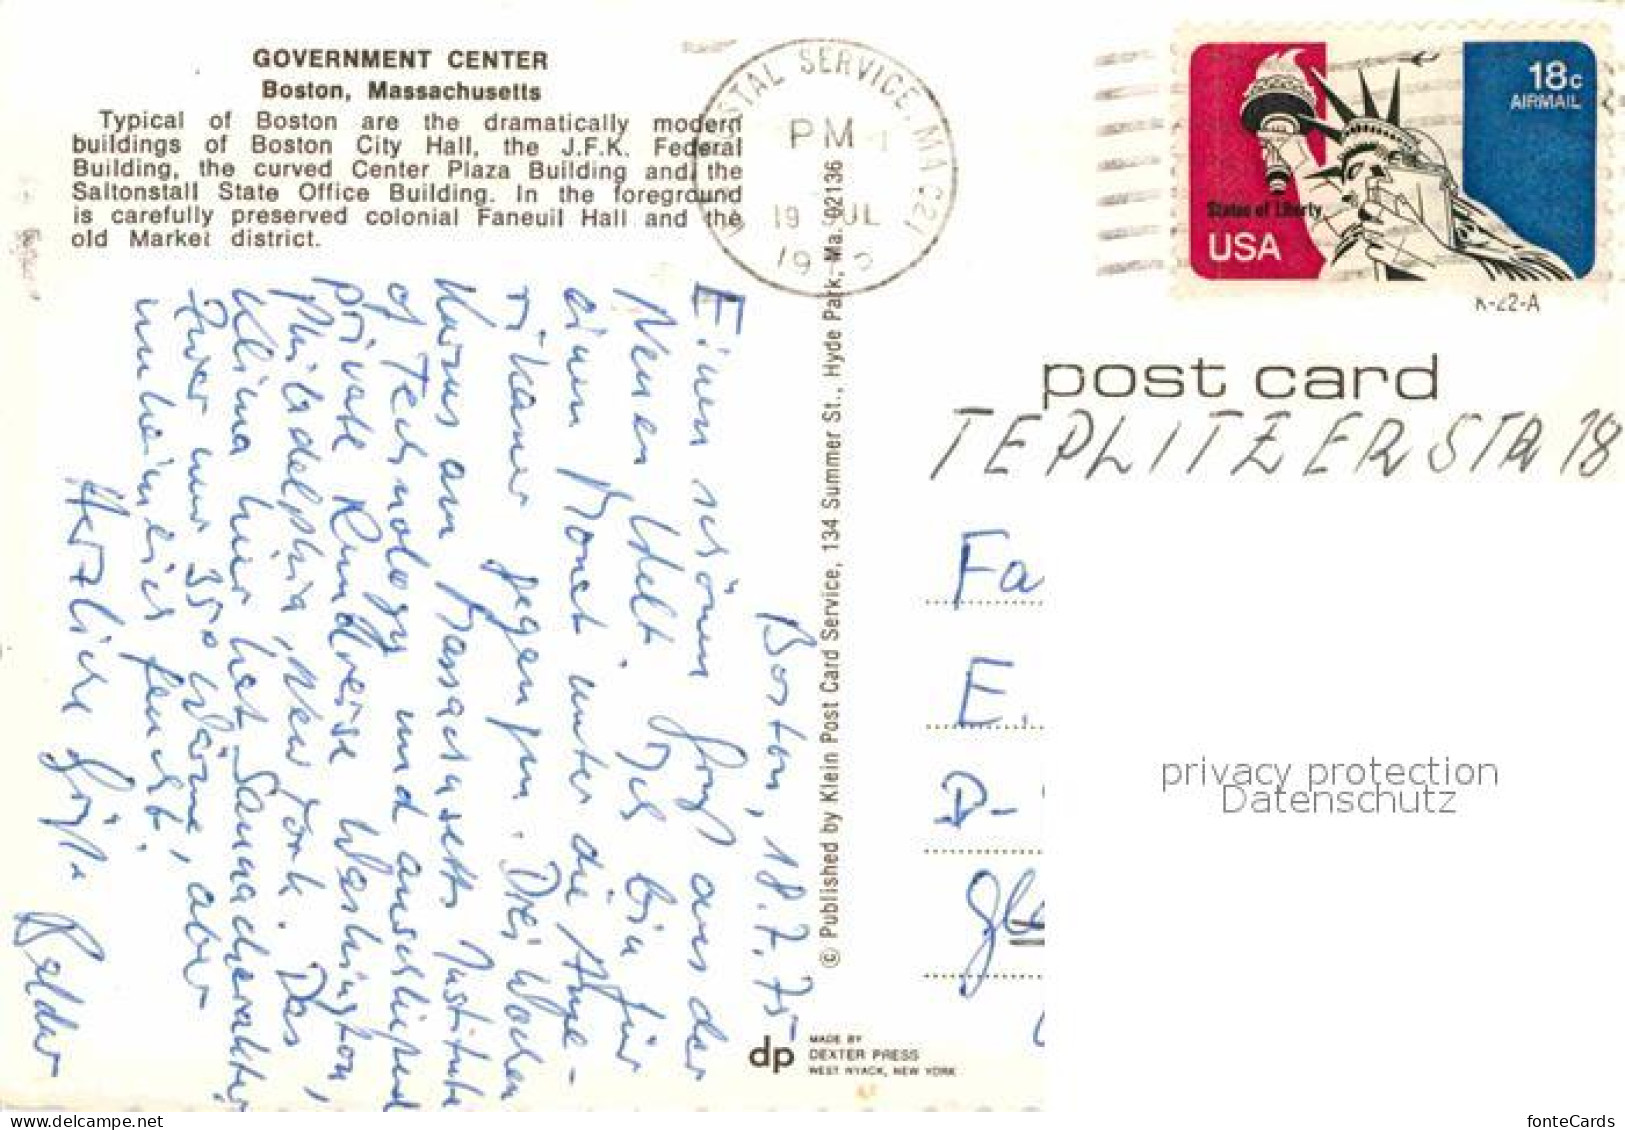 GOVERNMENT CENTER
Boston, Massachusetts
Typical of Boston are the dramatically modern
buildings of Boston City Hall, the J.F.K. Federal
Building, the curved Center Plaza Building and the
Saltonstall State Office Building. In the foreground
is carefully preserved colonial Faneuil Hall and the
old Market district.
POSTAL SERVICE, MA 021
PM
19 JUL
19
18c
AIRMAIL
Statue of Liberty
USA
K-22-A
post card
TEPLITZER STR 18
Fa
E.
D-
Boston, 18.7.75
Einen schönen Gruß aus der
Neuen Welt. Ich bin für
einen Monat unter die Ame-
rikaner gegangen. Drei Wochen
Kursus am Massachusetts Institute
of Technology und anschließend
private Rundreise Washington,
Philadelphia, New York. Das
Klima hier hat Saunacharakter,
zwar nur 35° Wärme, aber
unheimlich feucht.
Herzliche Grüße
© Published by Klein Post Card Service, 134 Summer St., Hyde Park, Ma. 02136
dp
MADE BY
DEXTER PRESS
WEST NYACK, NEW YORK
privacy protection
Datenschutz
www.delcampe.net
fonteCards